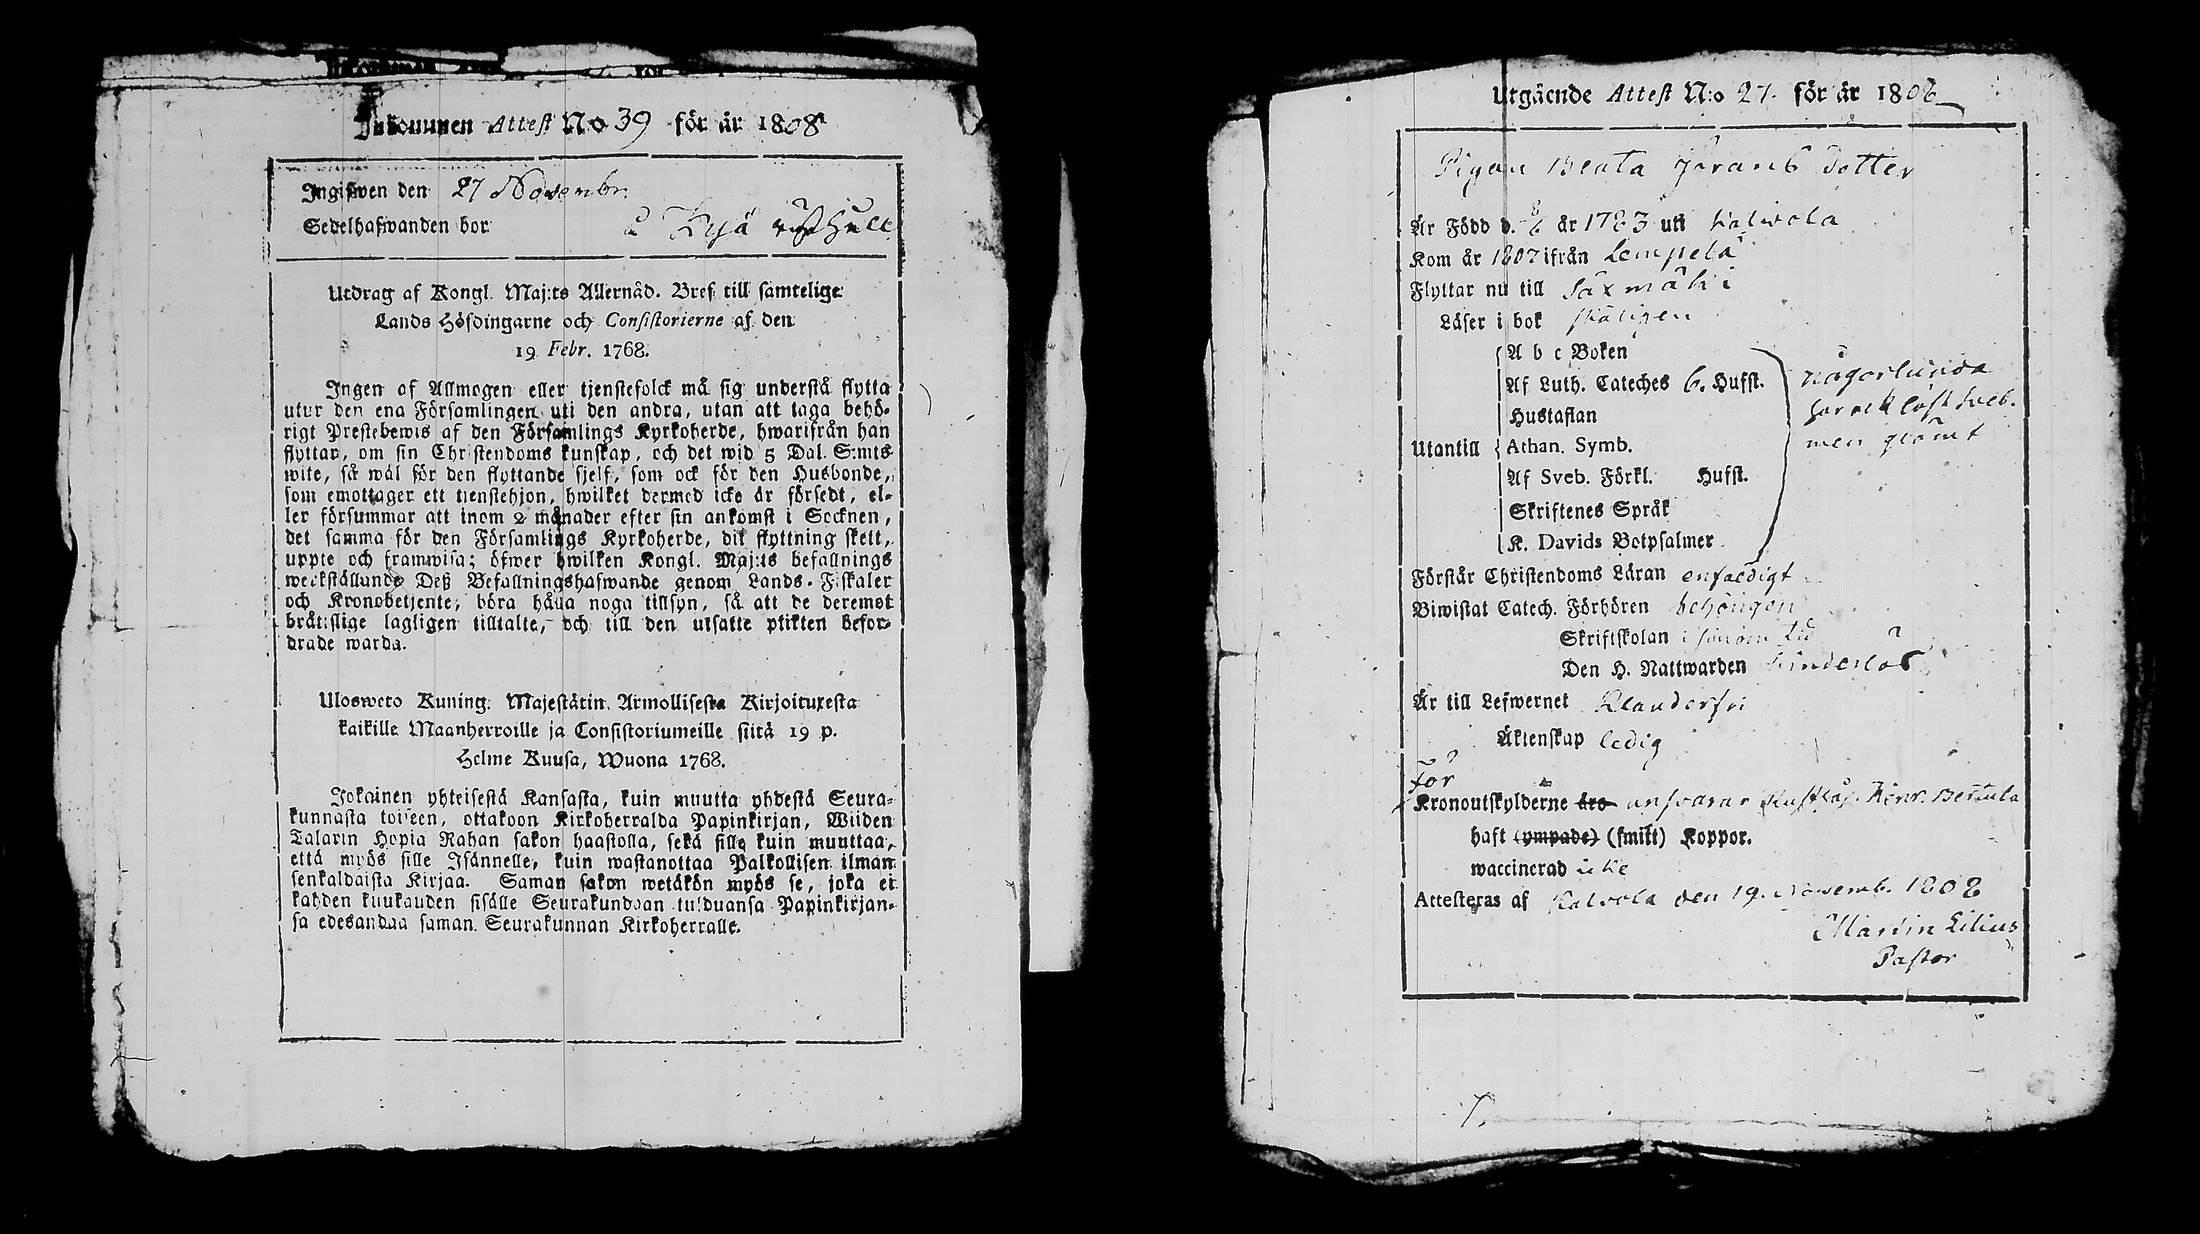 Inkommen Attest No 39 för år 1808
Ingifwen den 27 Novembr.
Sedelhafwanden bor å Kylä
Utdrag af Kongl. Maj:ts Allernåd. Bref till samtelige
Lands Höfdingarne och Consistorierne af den
19 Febr. 1768.
Ingen af Allmogen eller tjenstefolck må sig understå flytta
utur den ena Församlingen uti den andra, utan att taga behö-
rigt Prestebewis af den Församlings Kyrkoherde, hwarifrån han
flyttar, om sin Christendoms kunskap, och det wid 5 Dal. S:mts
wite, så wäl för den flyttande sjelf, som ock för den Husbonde,
som emottager ett tienstehjon, hwilket dermed icke är försedt, el-
ler försummar att inom 2 månader efter sin ankomst i Socknen,
det samma för den Församlings Kyrkoherde, dit flyttning skett,
uppte och framwisa; öfwer hwilken Kongl. Maj:ts befallnings
werkställande Deß Befallningshafwande genom Lands-Fiskaler
och Kronobetjente, böra hålla noga tillsyn, så att de deremot
bråtislige lagligen tilltalte, och till den utsatte plikten befor-
drade warda.
Ulosweto Kuning. Majestätin Armollisesta Kirjoituxesta
kaikille Maanherroille ja Consistoriumeille siitä 19 p.
Helme Kuusa, Wuona 1768.
Jokainen yhteisestä Kansasta, kuin muutta yhdestä Seura-
kunnasta toiseen, ottakoon Kirkoherralda Papinkirjan, Wiiden
Talarin Hopia Rahan sakon haastolla, sekä sille kuin muuttaa,
että myös sille Isännelle, kuin wastanottaa Palkollisen ilman
senkaldaista Kirjaa. Saman sakon wetäkön myös se, joka ei
kahden kuukauden sisälle Seurakundaan tulduansa Papinkirjan-
sa edesandaa saman Seurakunnan Kirkoherralle.
Utgående Attest N:o 27. för år 1808
Pigan Beata Jörans dotter
Är Född d. år 1783 uti Kalwola
Kom år 1807 ifrån Lempelä
Flyttar nu till Säxmäki
Läser i bok skäligen
A b c Boken
Af Luth. Cateches 6. Hufst. någorlunda
Hustaflan har ock läst Sveb.
Utantill Athan. Symb. men glömt
Af Sveb. Förkl. Hufst.
Skriftenes Språk
K. Davids Botpsalmer
Förstår Christendoms Läran enfaldigt
Biwistat Catech. Förhören behörigen
Skriftskolan i sinom tid
Den H. Nattwarden hinderlös
Är till Lefwernet Klanderfri
Äktenskap ledig
för
Kronoutskylderne äro answarar Henr. Bertula
haft (ympade) (smitt) Koppor.
waccinerad icke
Attesteras af Kalvola den 19. Novemb. 1808
Martin Lilius
Pastor